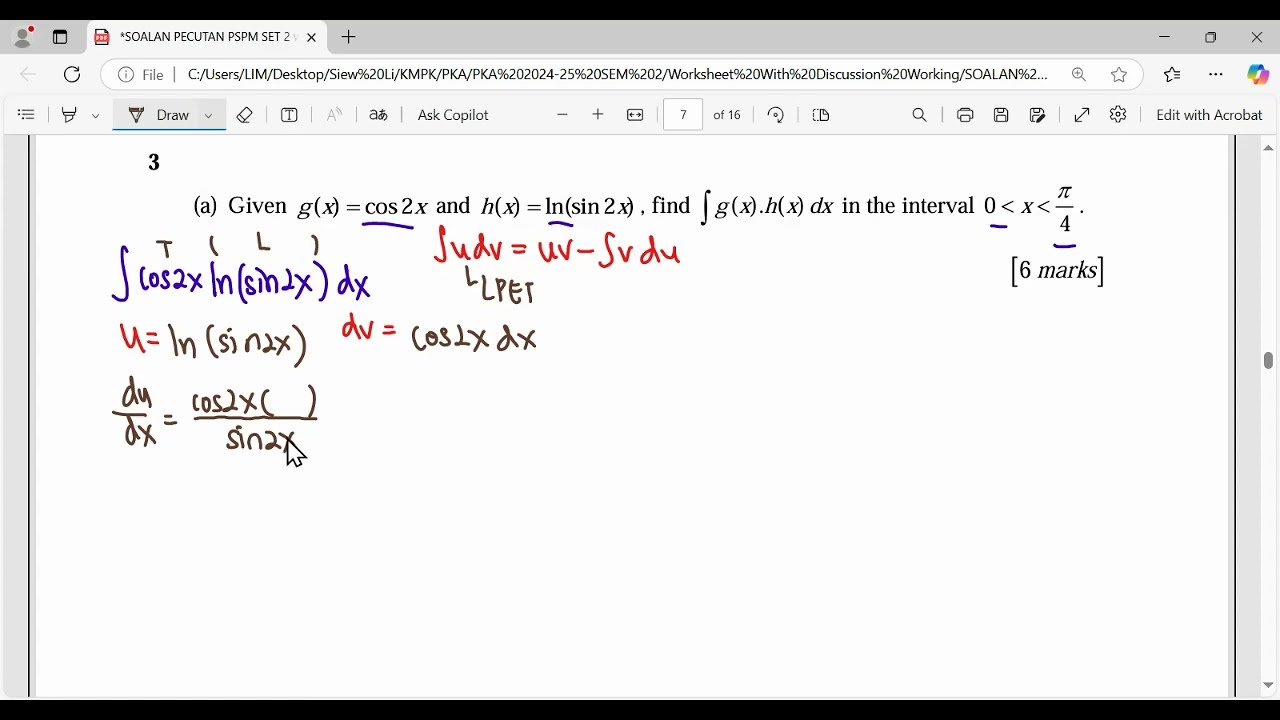 *SOALAN PECUTAN PSPM SET 2
File C:/Users/LIM/Desktop/Siew%20Li/KMPK/PKA/PKA%202024-25%20SEM%202/Worksheet%20With%20Discussion%20Working/SOALAN%2...
Draw Ask Copilot 7 of 16 Edit with Acrobat
3
(a) Given g(x) = cos 2x and h(x) = ln(sin 2x), find ∫ g(x).h(x) dx in the interval 0 < x < π/4 .
[6 marks]
T ( L )
∫ cos2x ln(sin2x) dx ∫u dv = uv - ∫v du
LPET
u = ln (sin2x) dv = cos2x dx
du/dx = cos2x( )/sin2x